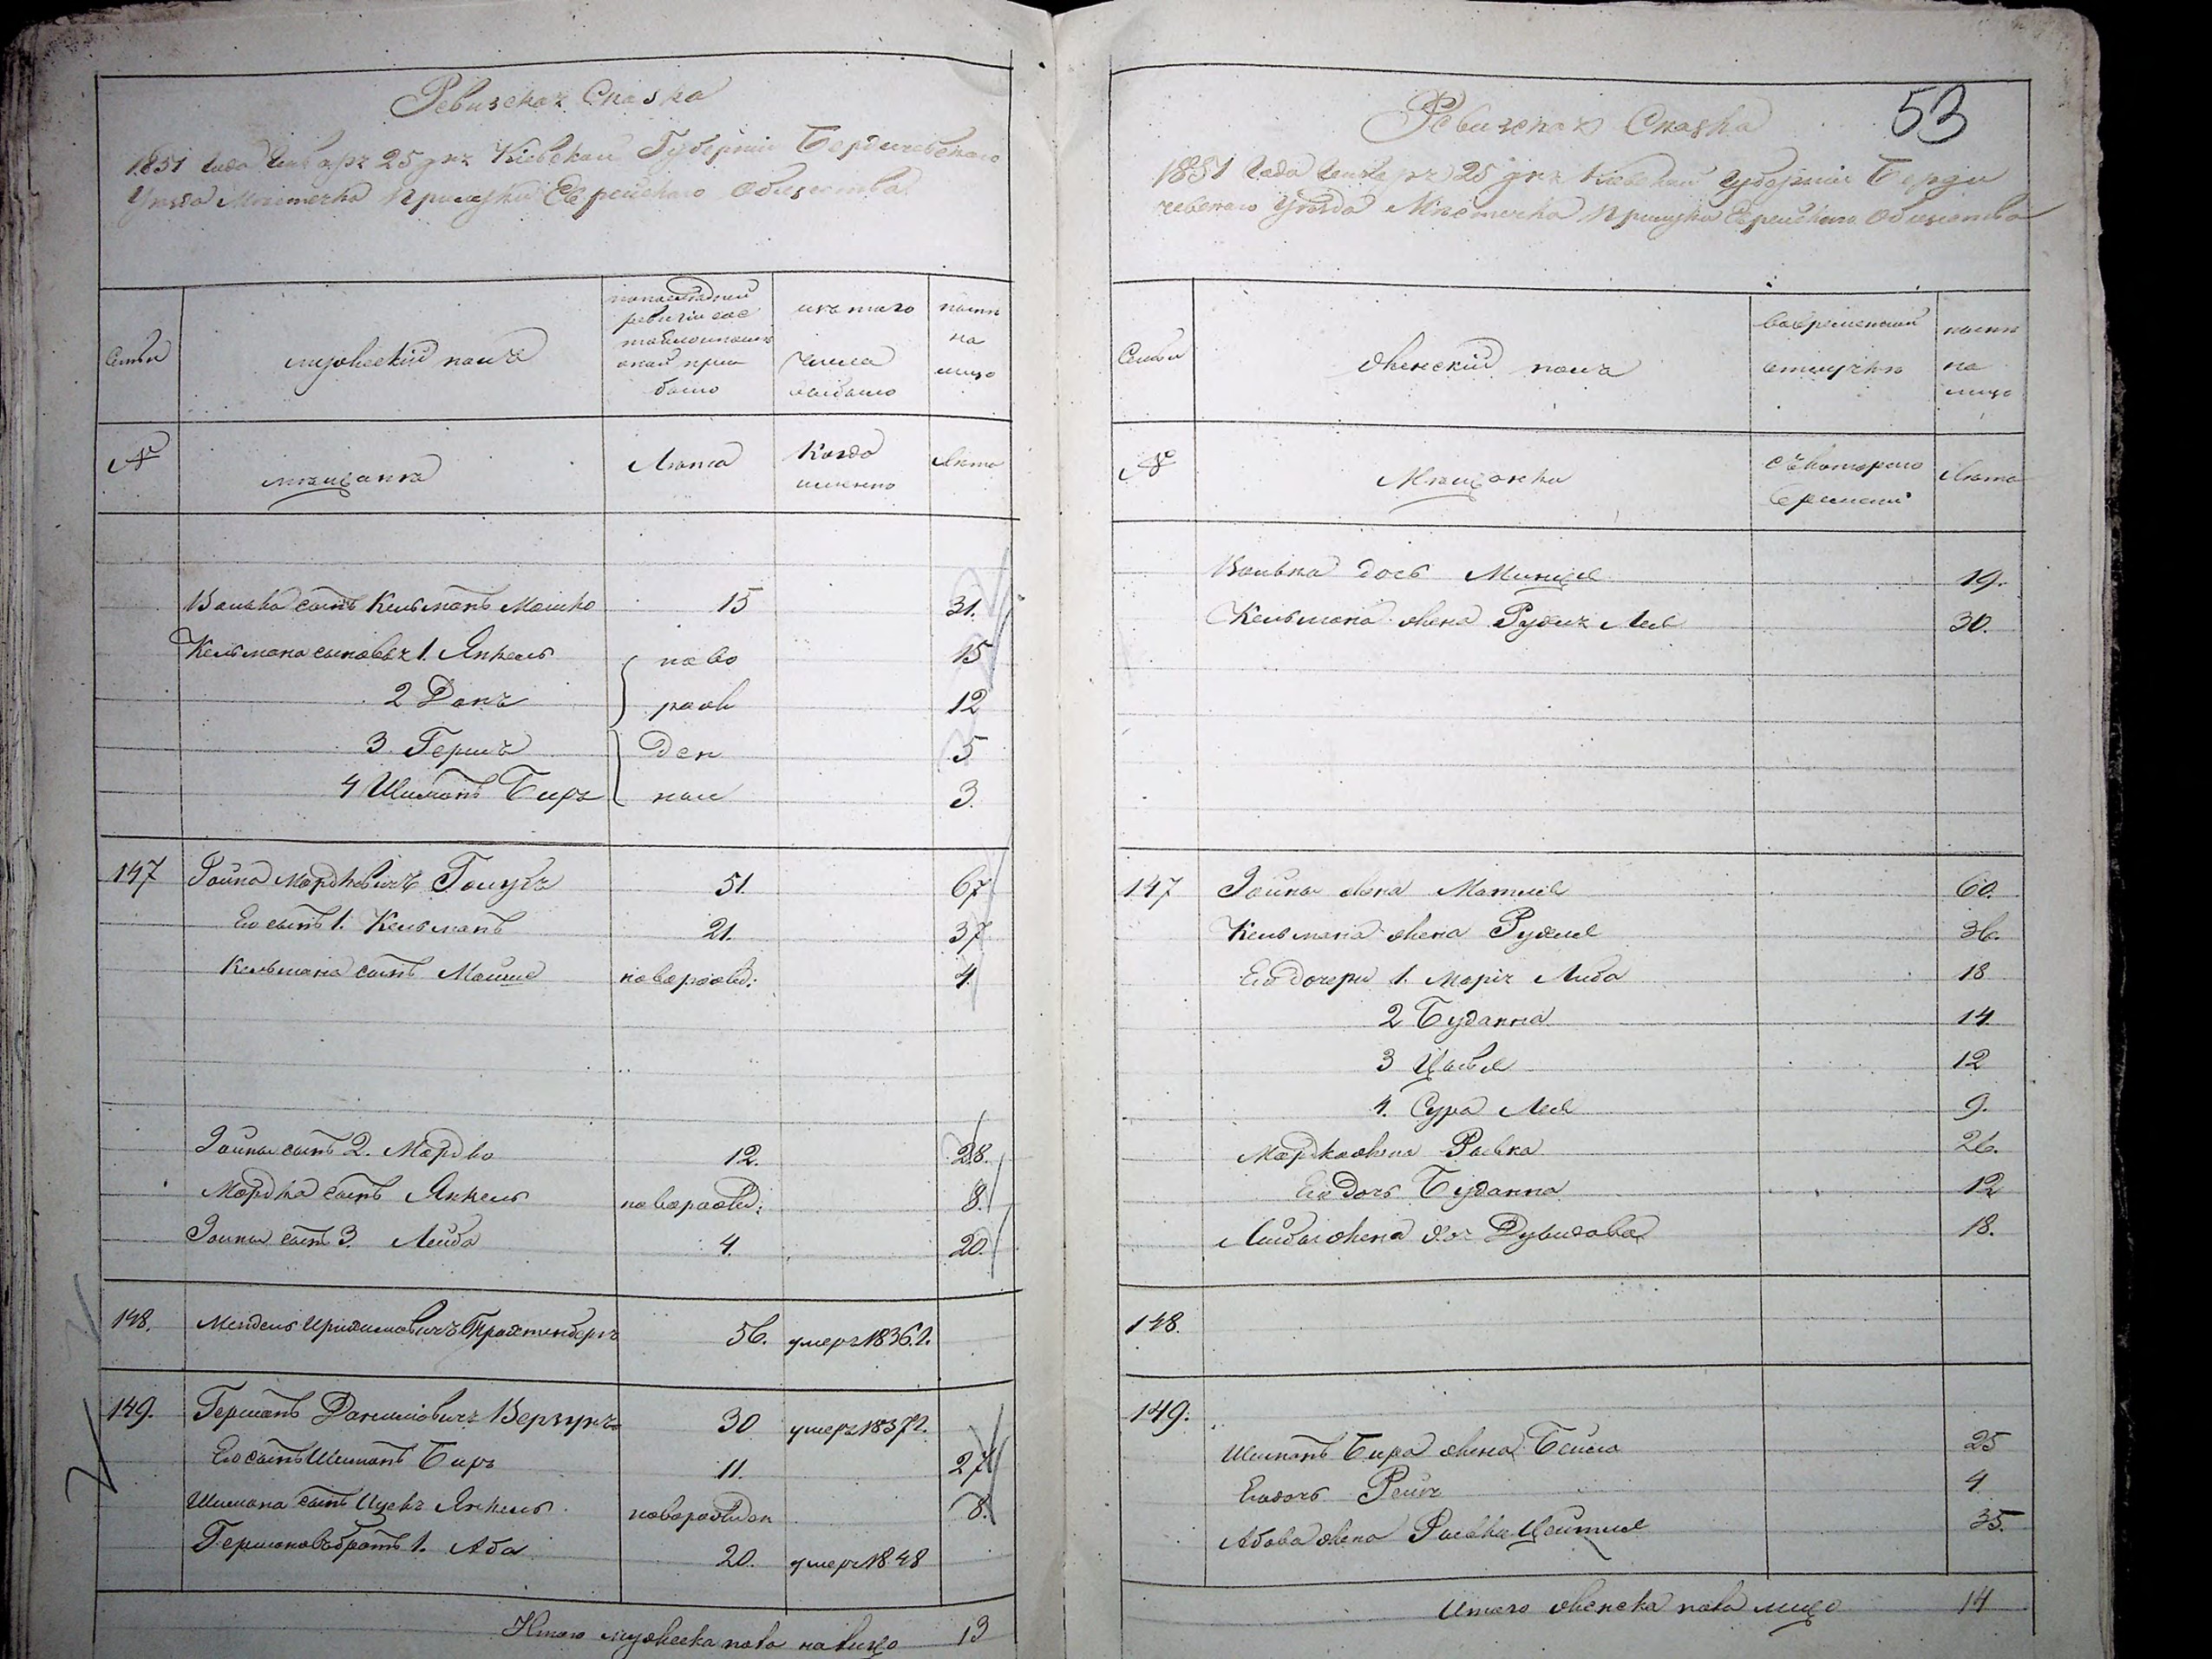 Ревизская Сказка
1851 года Генваря 25 дня Кіевской Губерніи Бердичевскаго
Уезда Местечка Прилуки Еврейскаго Общества
Семьи
мужескій полъ
по последней
ревизіи сос
тояло и после
оной при
было
изъ того
числа
выбыло
ныне
на
лицо
№
мещанѣ
Лѣта
Когда
именно
Лѣта
Волька сынъ Кельманъ Мошко 15 31.
Кельмана сыновья 1. Янкель ново 15
2 Данъ рож 12
3 Гершъ ден 5
4 Шимонъ Беръ ныи 3.
147 Іойна Мордковичъ Голубъ 51. 67
Его сынъ 1. Кельманъ 21. 37
Кельмана сынъ Мойше новорожд: 4.
Іойны сынъ 2. Мордко 12. 28.
Мордка сынъ Янкель новорожд: 8.
Іойны сынъ 3. Лейба 4. 20.
148. Мендель 56. умеръ 1836 г.
149. Германъ Даниловичъ 30 умеръ 1837 г.
Его сынъ Шимонъ Беръ 11. 27
Шимона сынъ Ицекъ Янкель новорожден 8.
Германовъ братъ 1. Аба 20. умеръ 1848
Итого мужеска пола на лицо 13
53
Ревизская Сказка
1851 Года Генваря 25 дня Кіевской Губерніи Берди
чевскаго Уѣзда Мѣстечка Прилуки Еврейскаго Общества
Семьи
женскій полъ
во временной
отлучкѣ
ныне
на
лицо
№
Мещанки
съ котораго
времени
Лѣта
Волька дочь 19.
Кельмана жена Рухля Лея 30.
147 Іойны жена Матля 60.
Кельмана жена Рухля 36.
Его дочери 1. Марія Либа 18
2 Буданна 14
3 Цивья 12
4. Сура Лея 9.
Мордка жена Ривка 26.
Его дочь Буданна 12
Лейбы жена Хая Дувидова 18.
148.
149.
Шимонъ Бера жена Бейла 25
Его дочь Рейзя 4
Абова жена Ривка Цейтля 35.
Итого женска пола на лицо 14